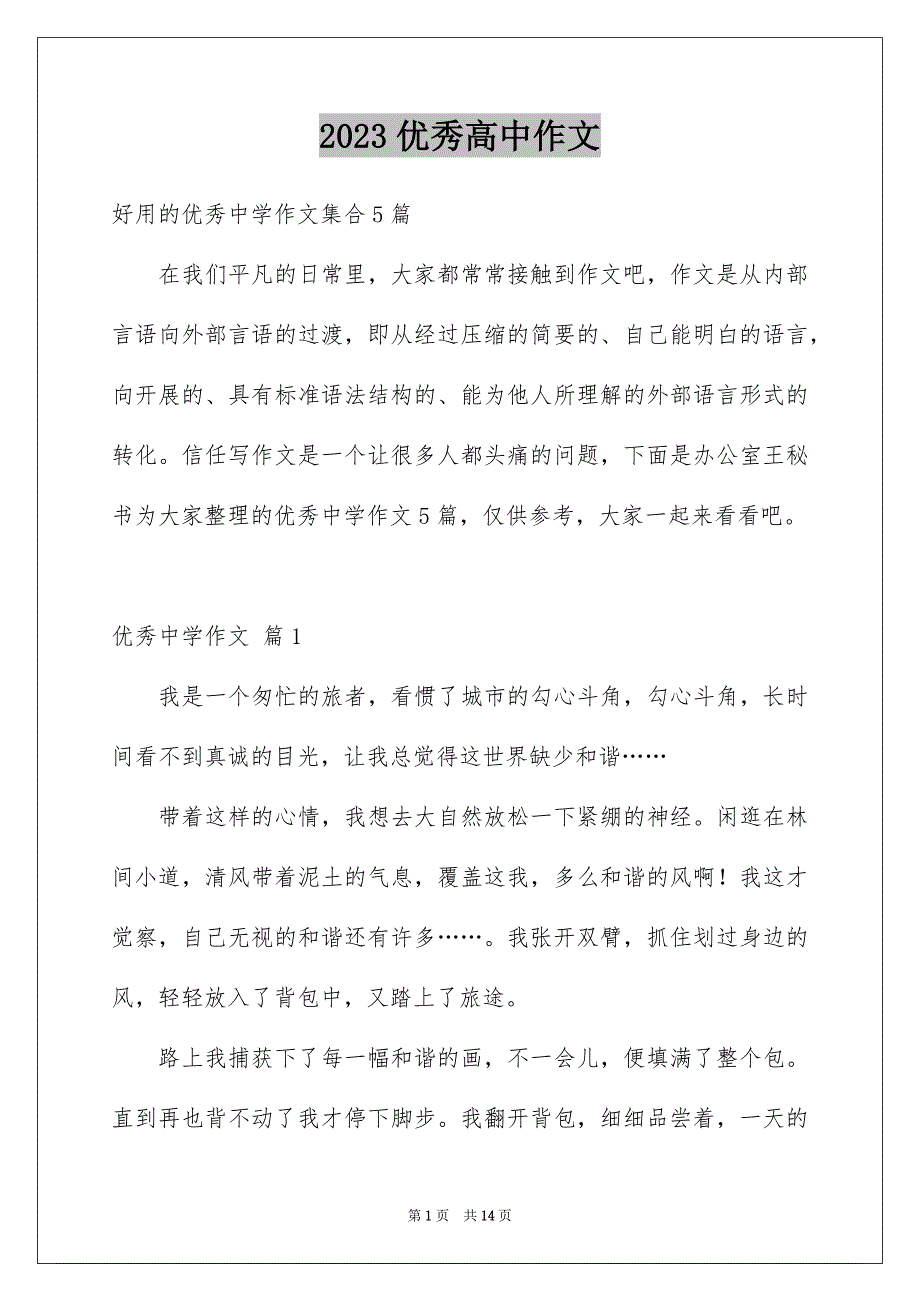 2023优秀高中作文
好用的优秀中学作文集合5篇
在我们平凡的日常里，大家都常常接触到作文吧，作文是从内部
言语向外部言语的过渡，即从经过压缩的简要的、自己能明白的语言，
向开展的、具有标准语法结构的、能为他人所理解的外部语言形式的
转化。信任写作文是一个让很多人都头痛的问题，下面是办公室王秘
书为大家整理的优秀中学作文5篇，仅供参考，大家一起来看看吧。
优秀中学作文 篇1
我是一个匆忙的旅者，看惯了城市的勾心斗角，勾心斗角，长时
间看不到真诚的目光，让我总觉得这世界缺少和谐……
带着这样的心情，我想去大自然放松一下紧绷的神经。闲逛在林
间小道，清风带着泥土的气息，覆盖这我，多么和谐的风啊！我这才
觉察，自己无视的和谐还有许多……。我张开双臂，抓住划过身边的
风，轻轻放入了背包中，又踏上了旅途。
路上我捕获下了每一幅和谐的画，不一会儿，便填满了整个包。
直到再也背不动了我才停下脚步。我翻开背包，细细品尝着，一天的
第1页 共14页